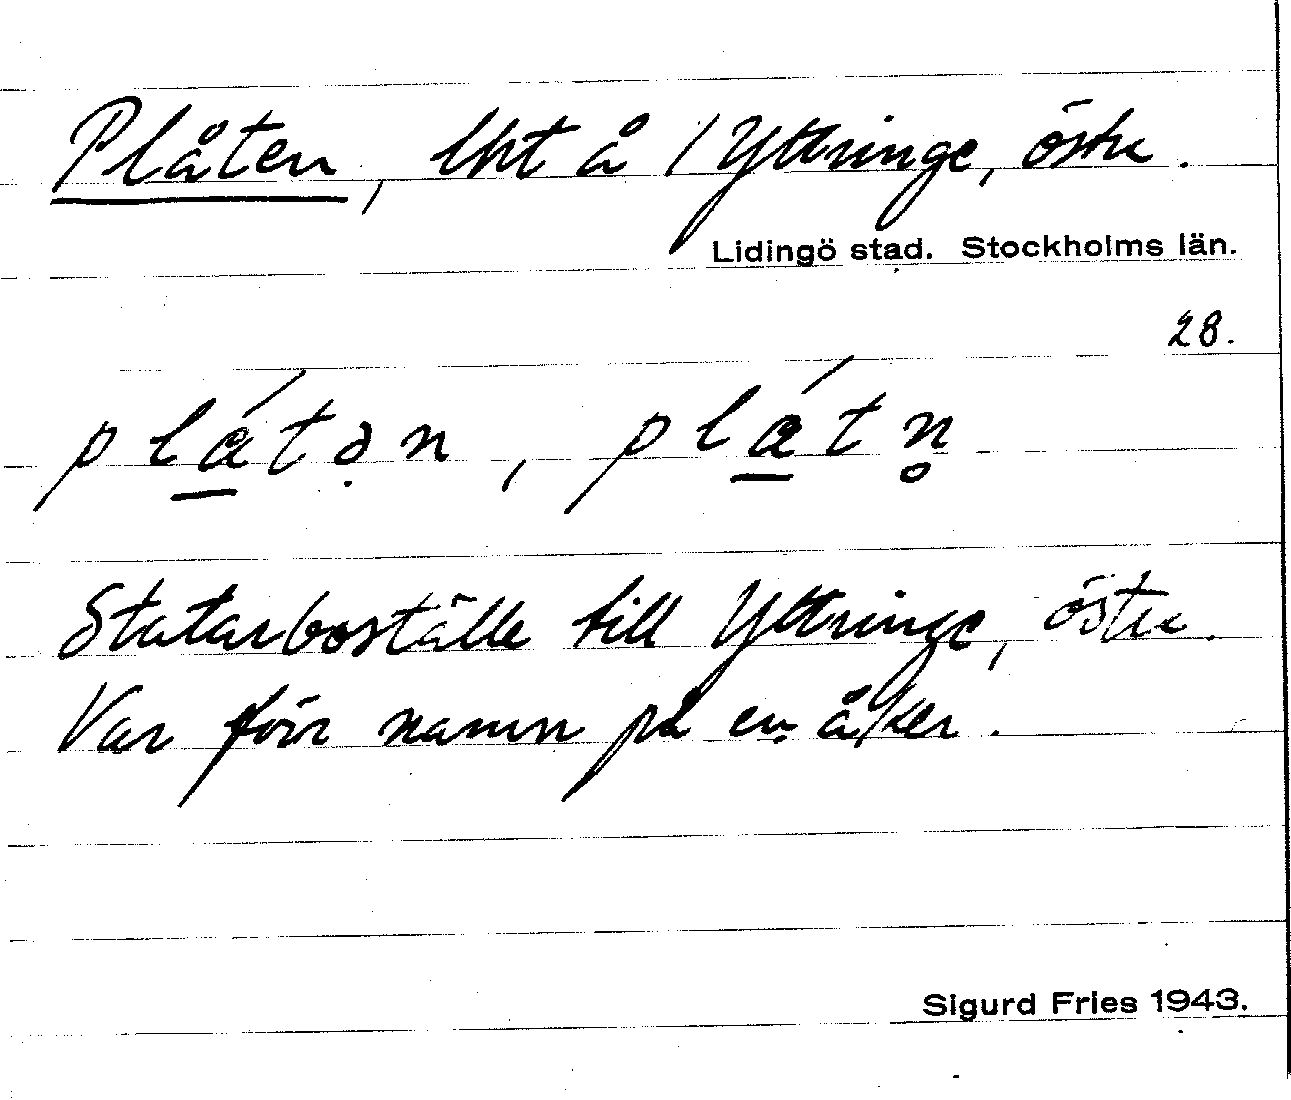 Plåten, lht å / Yttringe, östre.
Lidingö stad. Stockholms län.
28.
plá̱tə̣n, plá̱tn̥
Statarboställe till Yttringe, östre.
Var förr namn på en åker.
Sigurd Fries 1943.